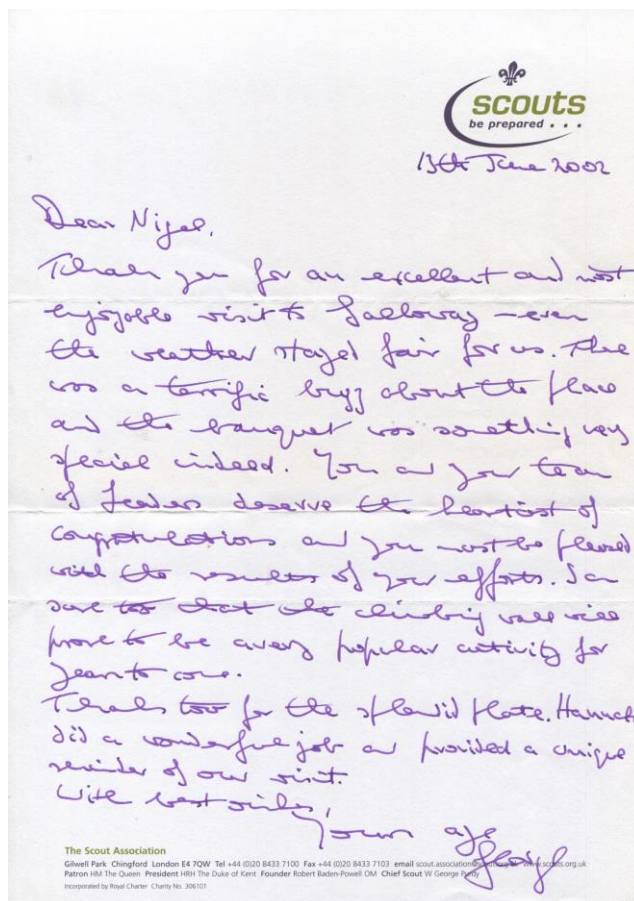 scouts
be prepared . . .
13th June 2002
Dear Nigel,
Thank you for an excellent and most
enjoyable visit to Galloway - even
the weather stayed fair for us. There
was a terrific buzz about the place
and the banquet was something very
special indeed. You and your team
of leaders deserve the heartiest of
congratulations and you must be pleased
with the results of your efforts. I am
sure too that the climbing wall will
prove to be a very popular activity for
years to come.
Thanks too for the splendid plate. Hannah
did a wonderful job and provided a unique
reminder of our visit.
With best wishes,
Yours aye
George
The Scout Association
Gilwell Park Chingford London E4 7QW Tel +44 (0)20 8433 7100 Fax +44 (0)20 8433 7103 email scout.association@scouts.org.uk www.scouts.org.uk
Patron HM The Queen President HRH The Duke of Kent Founder Robert Baden-Powell OM Chief Scout W George Purdy
Incorporated by Royal Charter Charity No. 306101